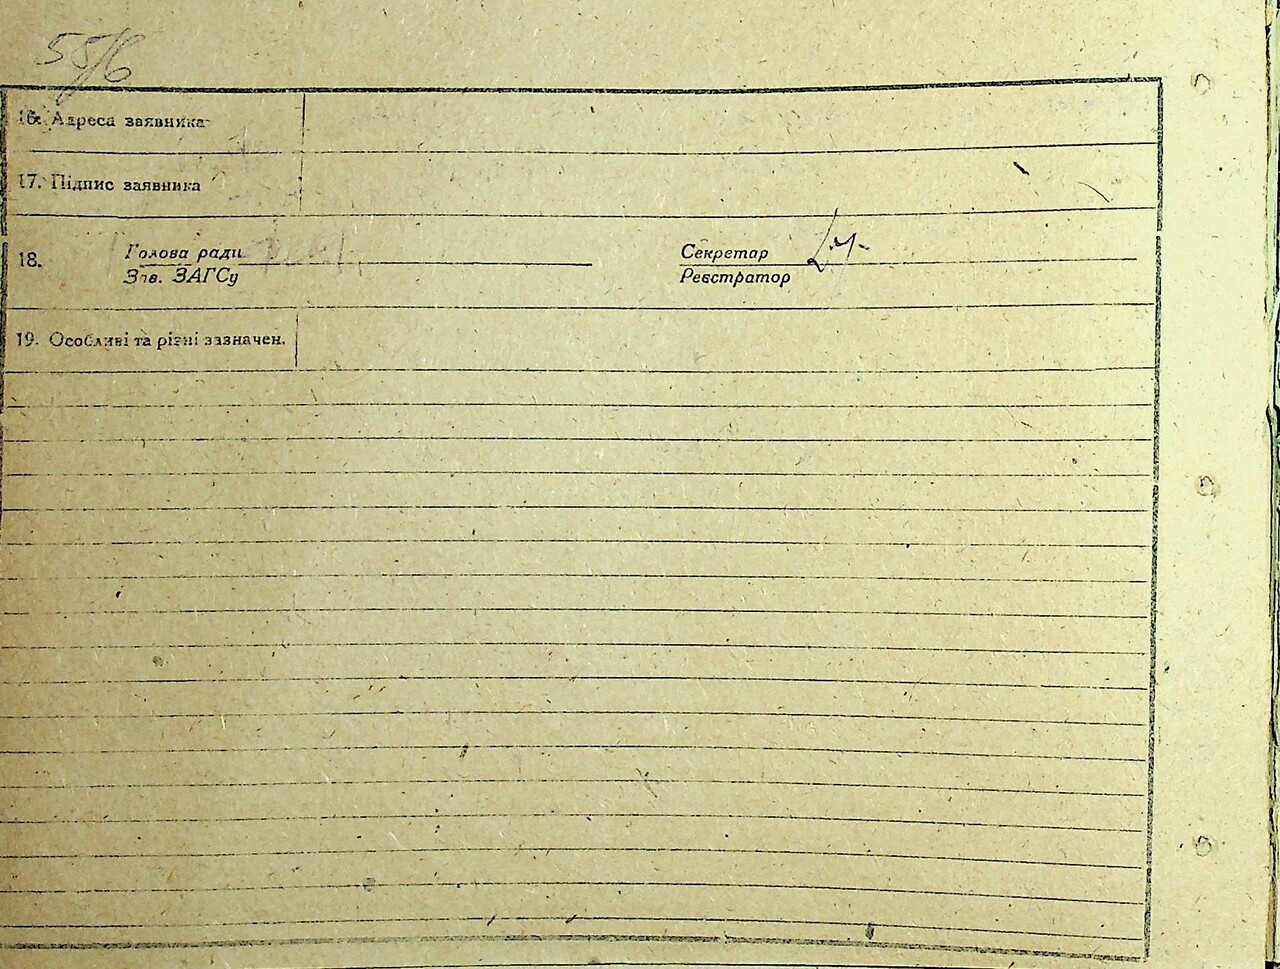 55/6
16. Адреса заявника
17. Підпис заявника
18. Голова ради
Зав. ЗАГСу
Секретар
Реєстратор
19. Особливі та різні зазначен.